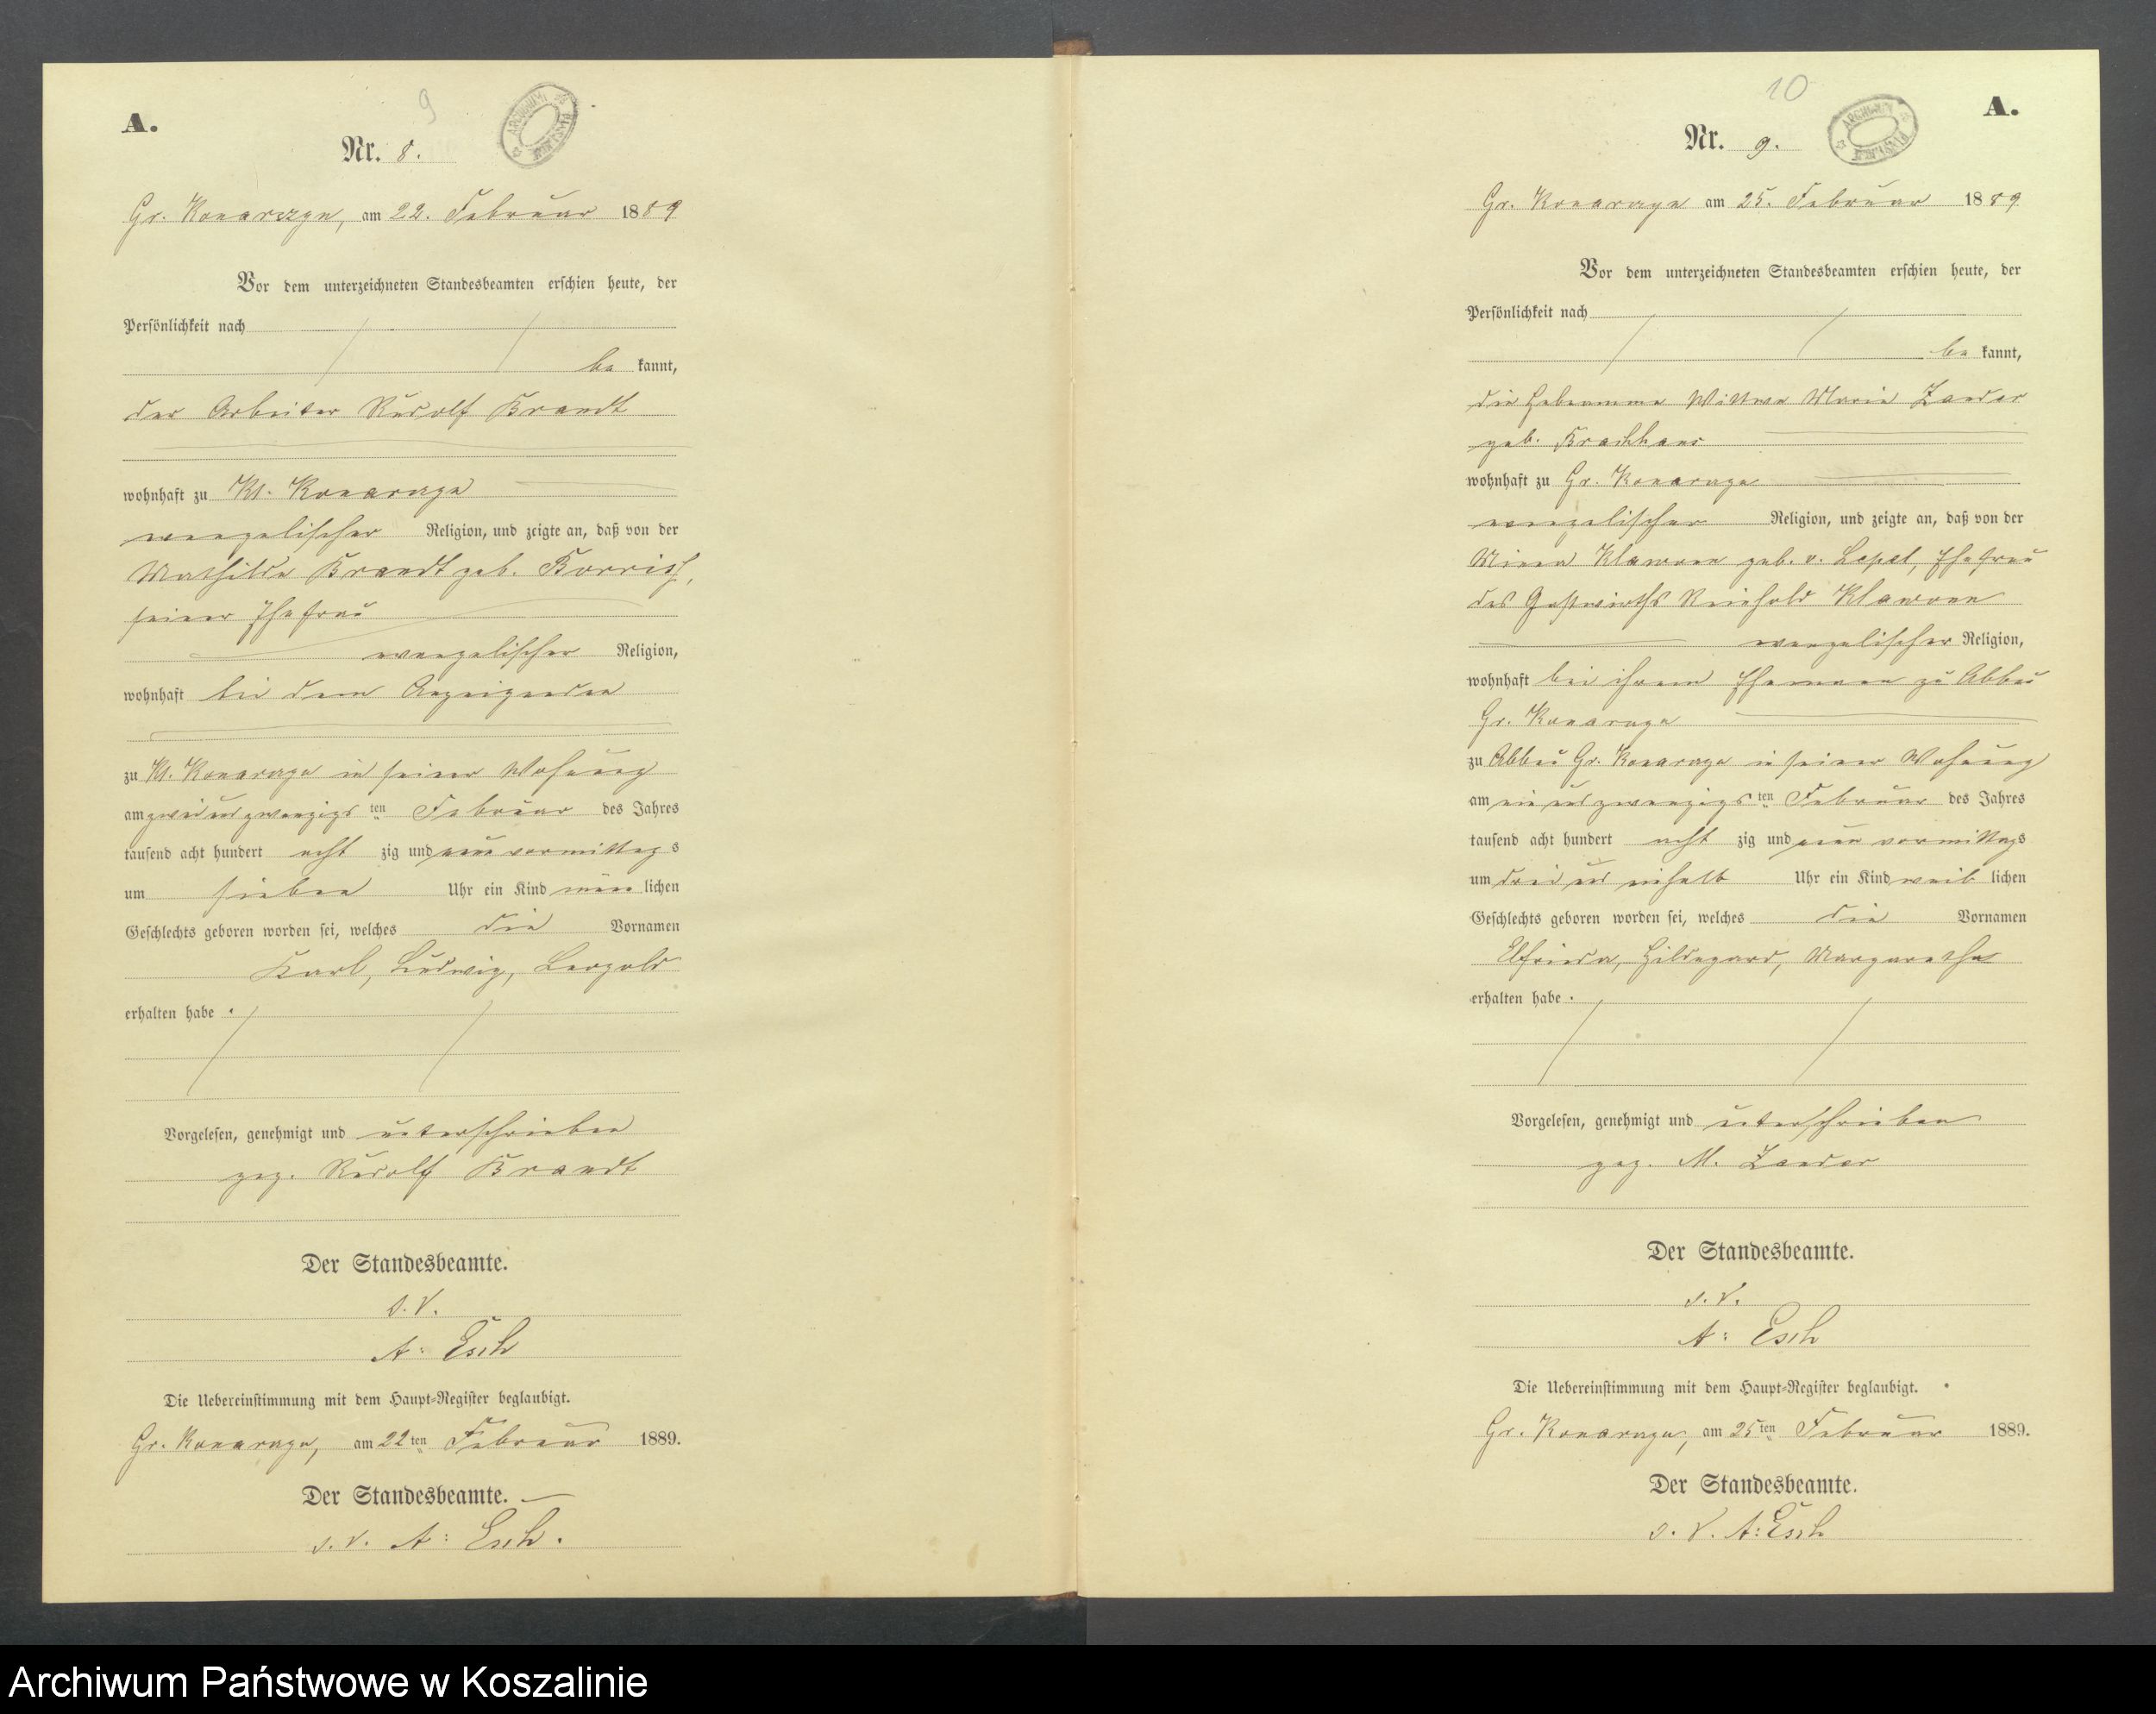 A.
9
Nr. 8.
Gr. Konarczyn, am 22. Februar 1889
Vor dem unterzeichneten Standesbeamten erschien heute, der
Persönlichkeit nach
be kannt,
der Arbeiter Rudolf Brandt
wohnhaft zu Kl. Konarczyn
evangelischer Religion, und zeigte an, daß von der
Mathilde Brandt geb.
seiner Ehefrau
evangelischer Religion,
wohnhaft bei dem Anzeigenden
zu Kl. Konarczyn in seiner Wohnung
am zwei und zwanzigs ten Februar des Jahres
tausend acht hundert acht zig und neun vormittags
um sieben Uhr ein Kind männ lichen
Geschlechts geboren worden sei, welches die Vornamen
Karl, Ludwig, Leopold
erhalten habe.
Vorgelesen, genehmigt und unterschrieben
gez. Rudolf Brandt
Der Standesbeamte.
A: Esch
Die Uebereinstimmung mit dem Haupt-Register beglaubigt.
Gr. Konarczyn, am 22ten Februar 1889.
Der Standesbeamte.
A: Esch.
10
A.
Nr. 9.
Gr. Konarczyn am 25. Februar 1889
Vor dem unterzeichneten Standesbeamten erschien heute, der
Persönlichkeit nach
be kannt,
die Hebeamme Wittwe Marie Zander
geb.
wohnhaft zu Gr. Konarczyn
evangelischer Religion, und zeigte an, daß von der
Minna Klawonn geb. v. Lepel, Ehefrau
des Gastwirths Reinhold Klawonn
evangelischer Religion,
wohnhaft bei ihrem Ehemann zu Abbau
Gr. Konarczyn
zu Abbau Gr. Konarczyn in seiner Wohnung
am ein und zwanzigs ten Februar des Jahres
tausend acht hundert acht zig und neun vormittags
um drei und einhalb Uhr ein Kind weib lichen
Geschlechts geboren worden sei, welches die Vornamen
Elfrieda, Hildegard, Margarethe
erhalten habe.
Vorgelesen, genehmigt und unterschrieben
gez. M. Zander
Der Standesbeamte.
A: Esch
Die Uebereinstimmung mit dem Haupt-Register beglaubigt.
Gr. Konarczyn, am 25ten Februar 1889.
Der Standesbeamte.
A: Esch
Archiwum Państwowe w Koszalinie